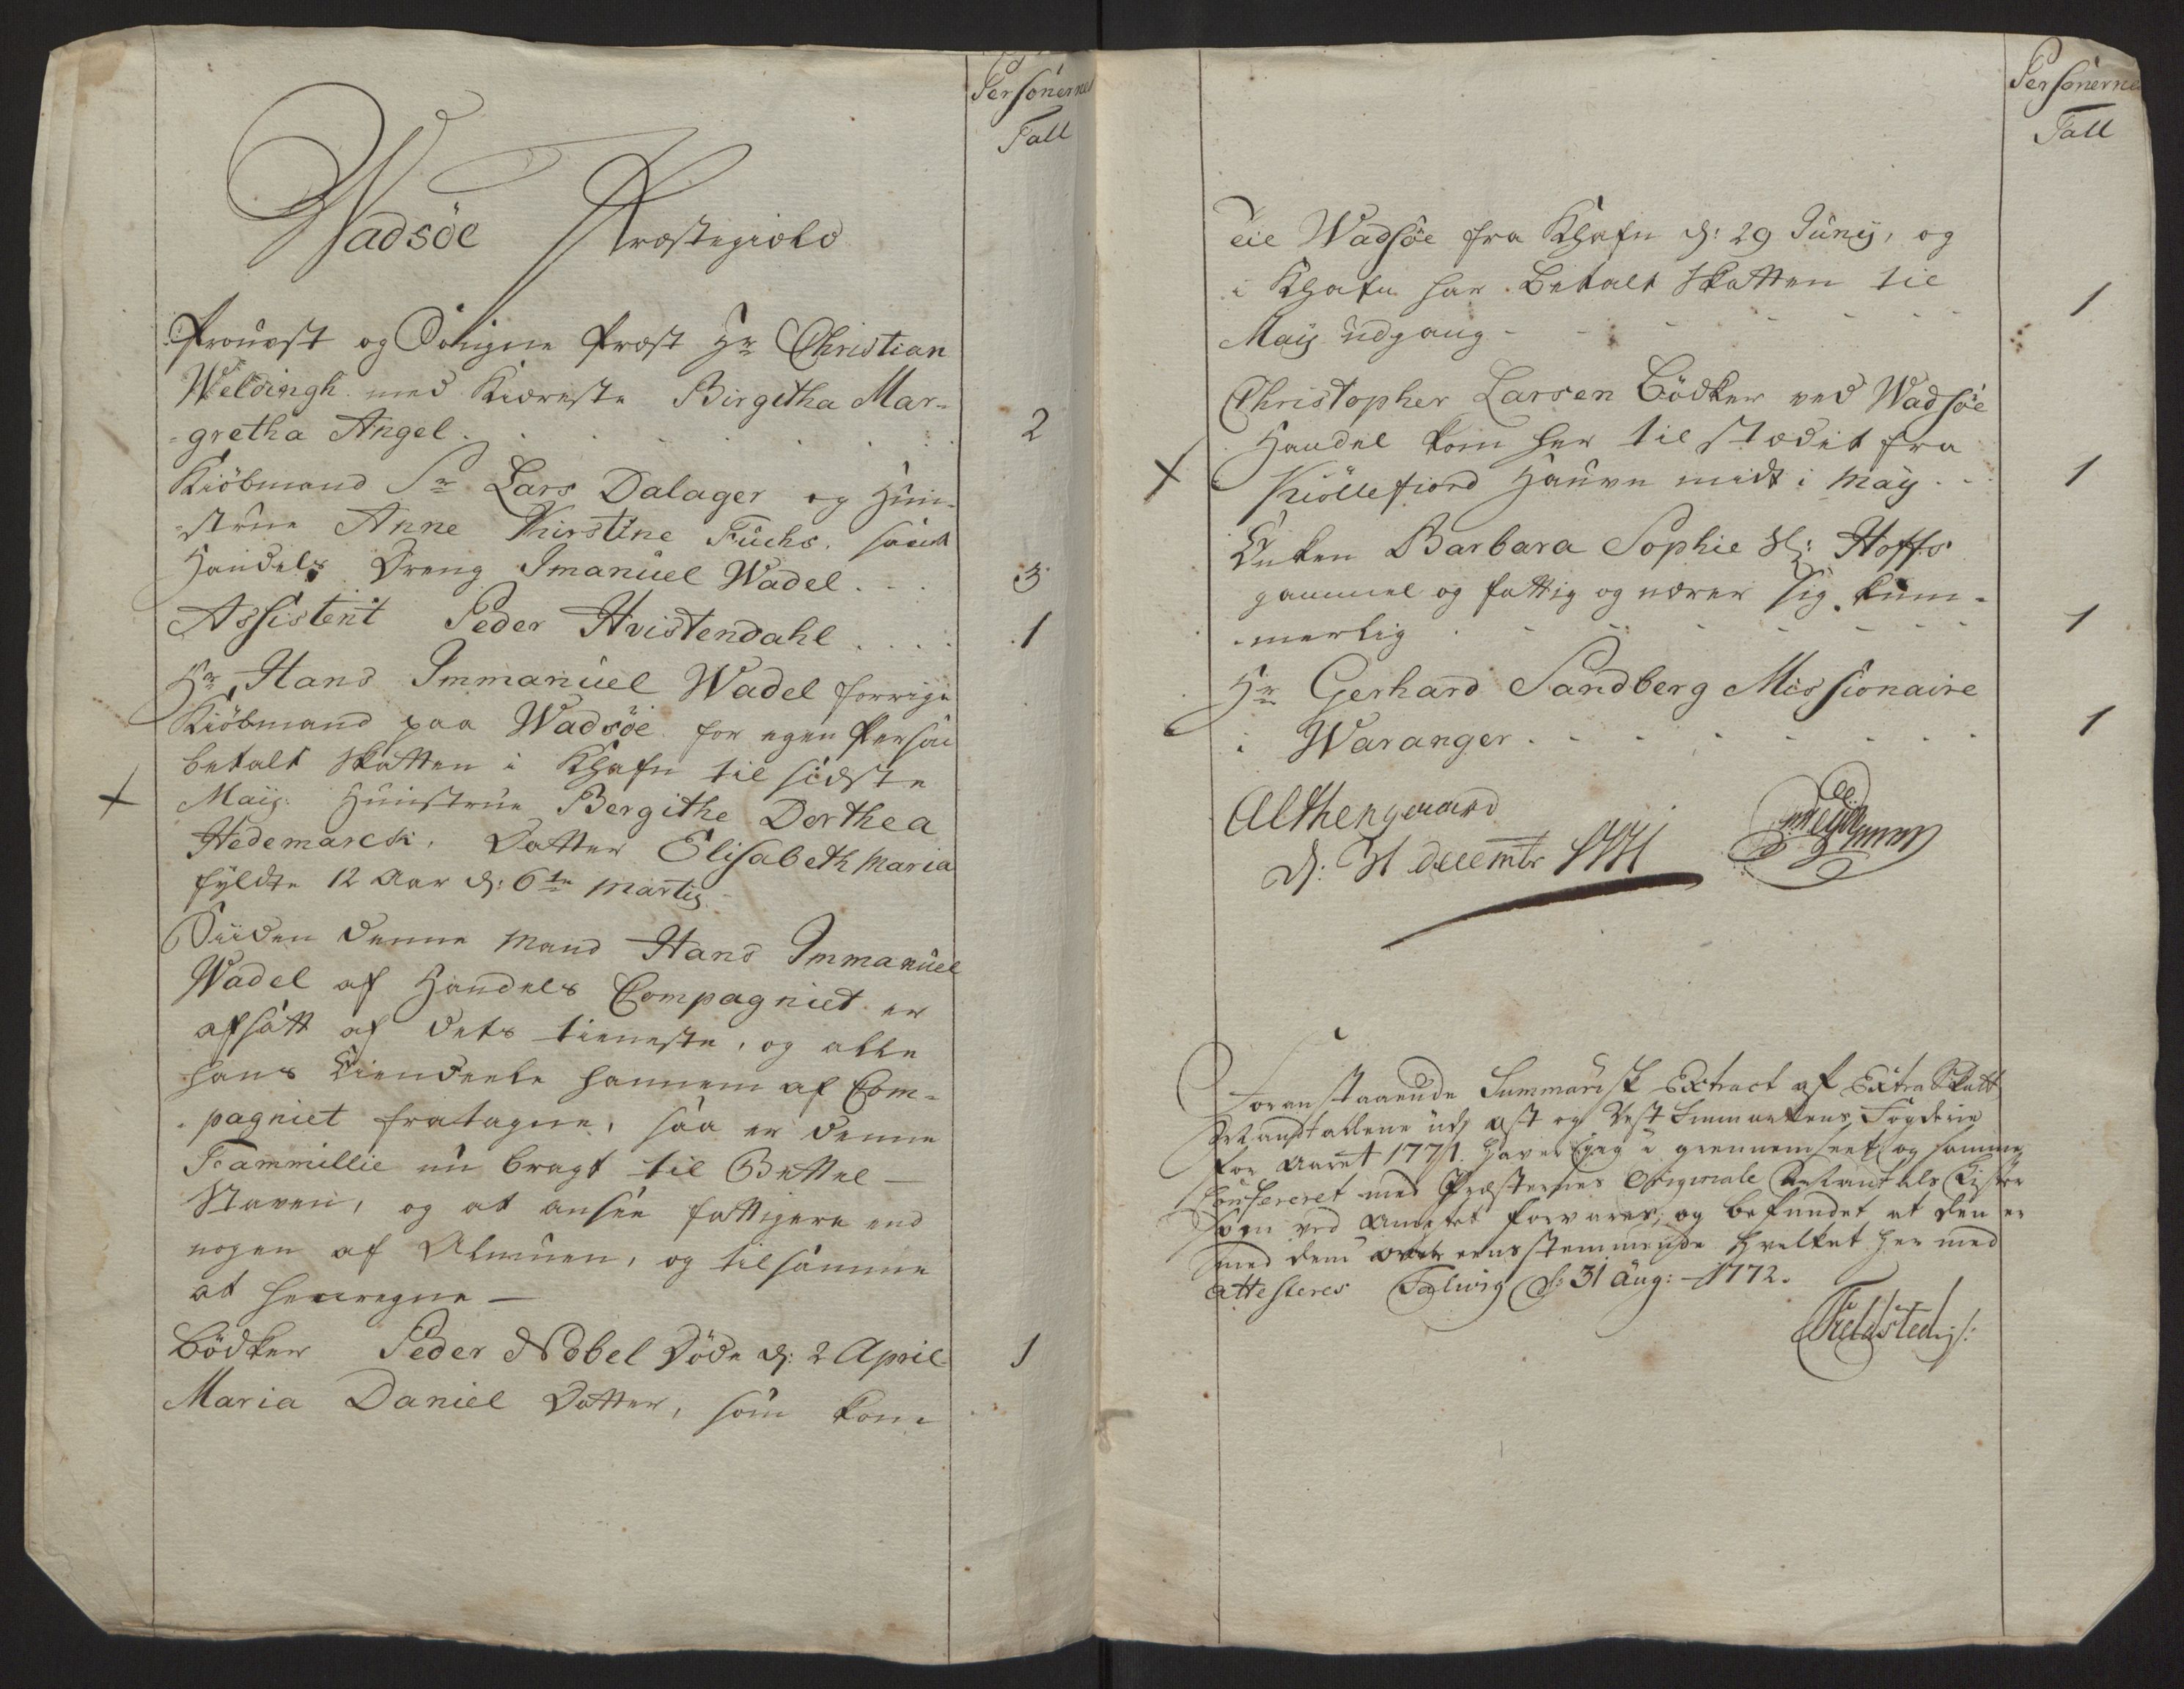 Personernes
Tall
Wadsöe Præstegield
Provst og Sogne Præst Hr Christian
Weldingh med Kiæreste Birgitha Mar-
-gretha Angel . . . . . . 2
Kiöbmand Sr Lars Dalager og Huu-
-strue Anne Kirstine Fuchs, samt
Handels Dreng Imanuel Wadel . . . 3
Assistent Peder Hvistendahl . . . . 1
Hr Hans Immanuel Wadel forrige
Kiöbmand paa Wadsöe for egen Persohn
betalt Skatten i Khafn til sidste
Maij. Huustrue Bergithe Dorthea
Hedemarck, Datter Elisabeth Maria
fyldte 12 Aar d: 6te Martij
Siiden denne Mand Hans Immanuel
Wadel af Handels Compagniet er
afsatt af dets tieneste, og alle
hans Eiendeele hannem af Com-
-pagniet fratagne, saa er denne
Fammillie nu bragt til Bettel-
Staven, og at ansee fattigere end
nogen af Almuen, og tilsamme
at henregne —
Bödker Peder Nobel Döde d: 2 April 1
Maria Daniel Datter, som kom
Personernes
Tall
til Wadsöe fra Khafn d: 29 Junij, og
i Khafn har betalt Skatten til
Maij udgang - - - - - - 1
Christopher Larsen Bödker ved Wadsöe
Handel kom her til stædet fra
Kiöllefiord Hauvn midt i Maij . . 1
Enken Barbara Sophie Sl: Hoffs
gammel og fattig og nærer sig kum-
-merlig . - - - - - - 1
Hr Gerhard Sandberg Missionaire
i Waranger . - - - - - 1
Althengaard
d: 31 decembr 1771
Foranstaaende Summarisk Extract af Extra Skatt
Mandtallene udj Øst og Vest Finmarkens Fogderie
for Aaret 1771. haver jeg igiennemseet og samme
Confereret med Præsternes Originale Mandtals Lister
som ved Amtet forvares, og befundet at den er
med dem overeensstemmende hvilket her med
attesteres Talwig d: 31 Aug: 1772.
Fieldsted